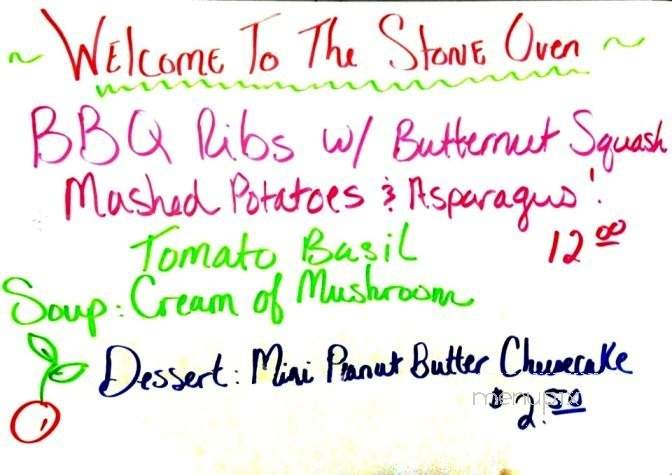 ~ Welcome To The Stone Oven ~
BBQ Ribs w/ Butternut Squash
Mashed Potatoes & Asparagus!
12.00
Tomato Basil
Soup: Cream of Mushroom
Dessert: Mini Peanut Butter Cheesecake
$2.50
menupix